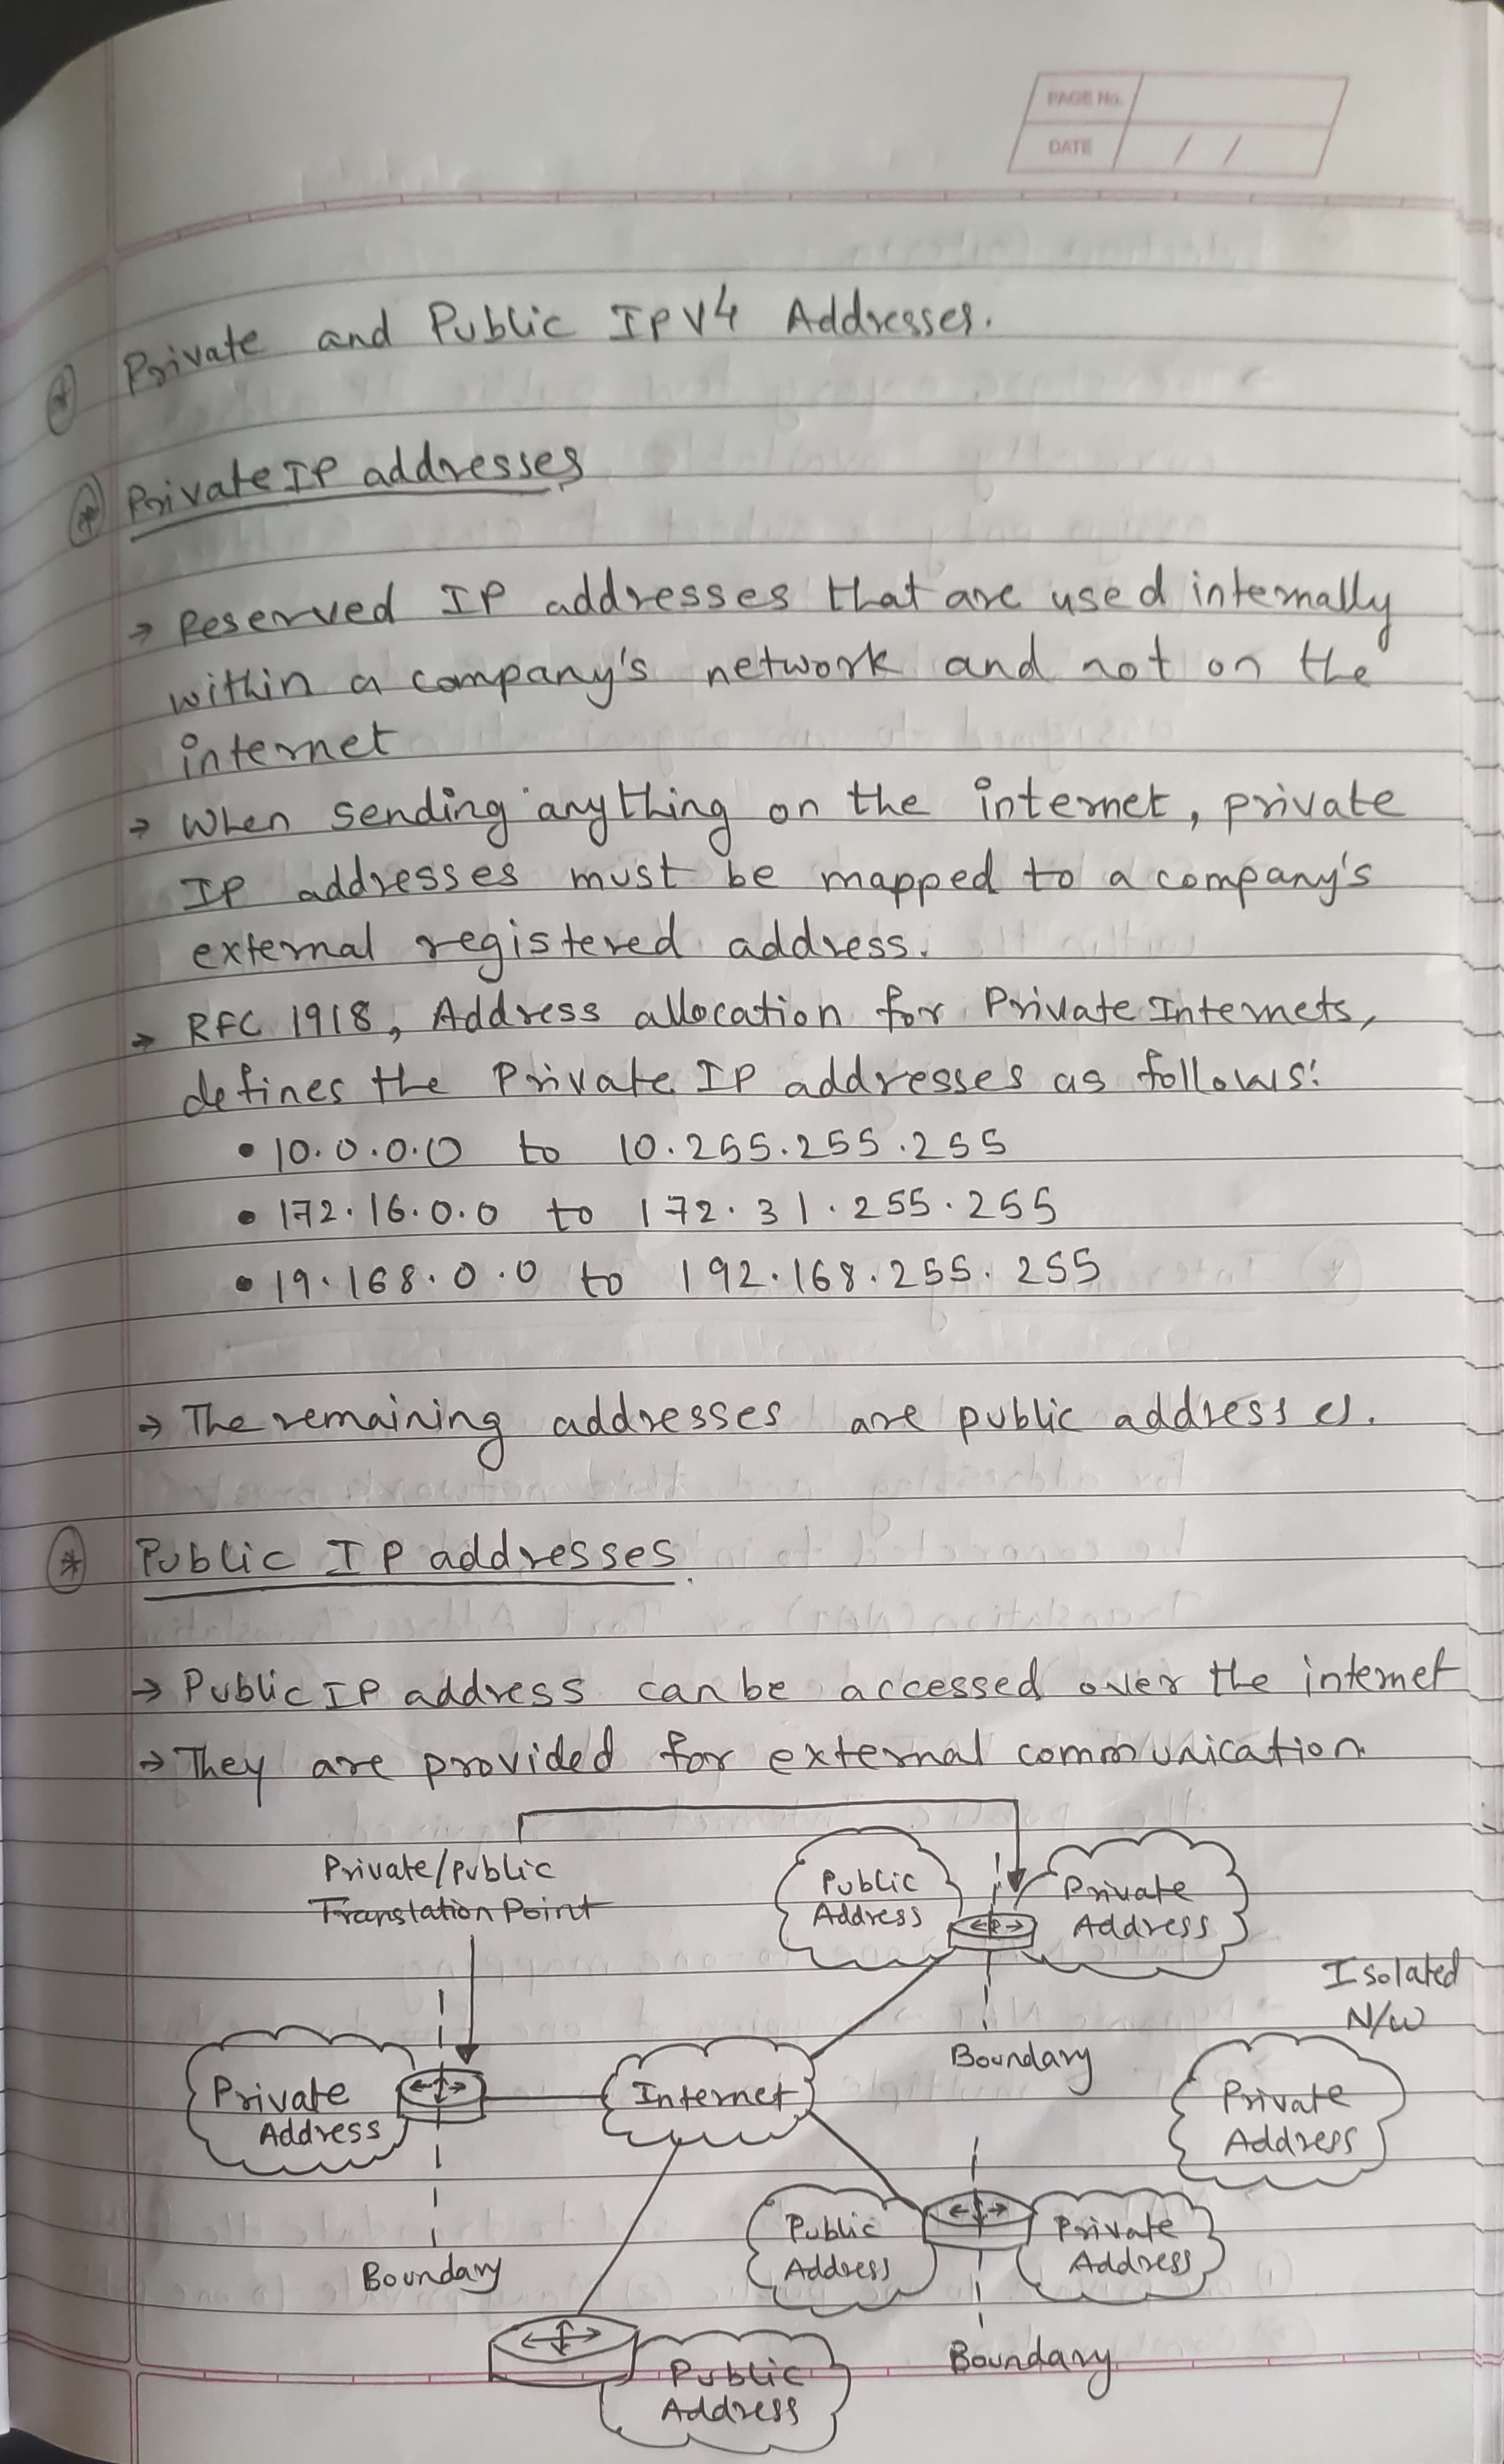 PAGE No.
DATE / /
Private and Public IPV4 Addresses.
Private IP addresses
→ Reserved IP addresses that are used internally
within a company's network and not on the
internet
→ When sending anything on the internet, private
IP addresses must be mapped to a company's
external registered address.
→ RFC 1918, Address allocation for Private Internets,
defines the Private IP addresses as follows:
• 10.0.0.0 to 10.255.255.255
• 172.16.0.0 to 172.31.255.255
• 19.168.0.0 to 192.168.255.255
→ The remaining addresses are public addresses.
Public IP addresses.
→ Public IP address can be accessed over the internet
→ They are provided for external communication
Private/public
Translation Point
Public
Address
Private
Address
Isolated
N/W
Boundary
Private
Address
Internet
Private
Address
Boundary
Public
Address
Private
Address
Boundary
Public
Address